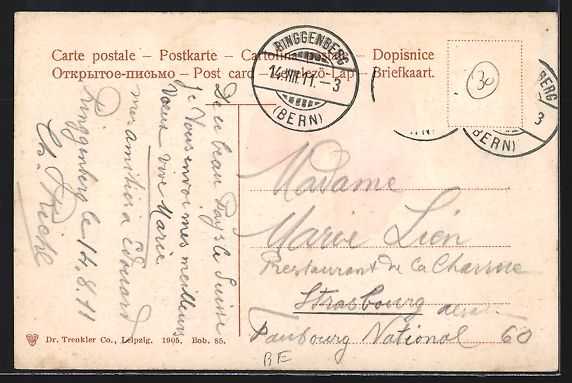 Carte postale – Postkarte – Cartolina postale – Dopisnice
Открытое-письмо – Post card – Levelező-Lap – Briefkaart.
RINGGENBERG
14.VIII.11.–3
(BERN)
(BERN)
3
30
De ce beau Pays la Suisse
je vous envoi mes meilleurs
Vœux vive Marie
mes amitiés à Edouard
Ringgenberg le 14.8.11
Ch.
Madame
Marie Lien
Restaurant de la Charrue
Strasbourg
Faubourg National 60
Dr. Trenkler Co., Leipzig. 1905. Bob. 85.
BE